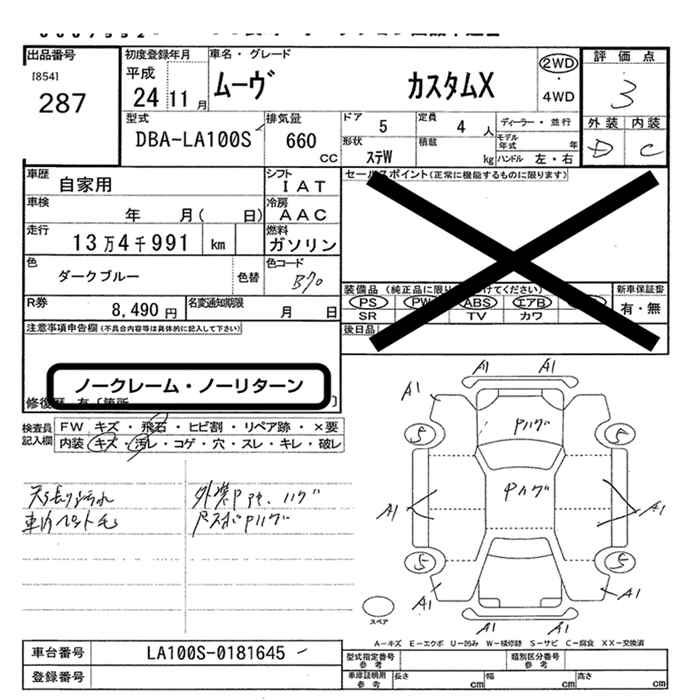 出品番号
[854]
287
初度登録年月
平成
24 11 月
車名・グレード
ムーヴ カスタムX
2WD
・
4WD
評価点
3
外装 内装
D C
型式
DBA-LA100S
排気量
660
CC
ドア
5
定員
4 人
ディーラー・並行
モデル年式 年
形状
ステW
積載
kg
ハンドル 左・右
車歴
自家用
シフト
IAT
車検
年 月( 日)
冷房
AAC
走行
13万4千991 km
燃料
ガソリン
色
ダークブルー
色替
色コード
B70
R券
8,490 円
名変通知期限
月 日
セールスポイント(正常に機能するものに限ります)
装備品
PS PW ABS エアB
SR TV カワ
新車保証書
有・無
後日品
注意事項申告欄(不具合内容等は具体的に記入して下さい)
ノークレーム・ノーリターン
検査員
記入欄
FW キズ・飛石・ヒビ割・リペア跡・×要
内装 キズ・汚レ・コゲ・穴・スレ・キレ・破レ
天張り汚れ
車内ペット毛
外装
A1 A1
A1
5 5
A1 A1
5 5
A1 A1
A1 A1
スペア
A-キズ E-エクボ U-凹み W-補修跡 S-サビ C-腐食 XX-交換済
車台番号
LA100S-0181645
登録番号
型式指定番号
参考
類別区分番号
参考
車庫証明用
参考
長さ cm
幅 cm
高さ cm